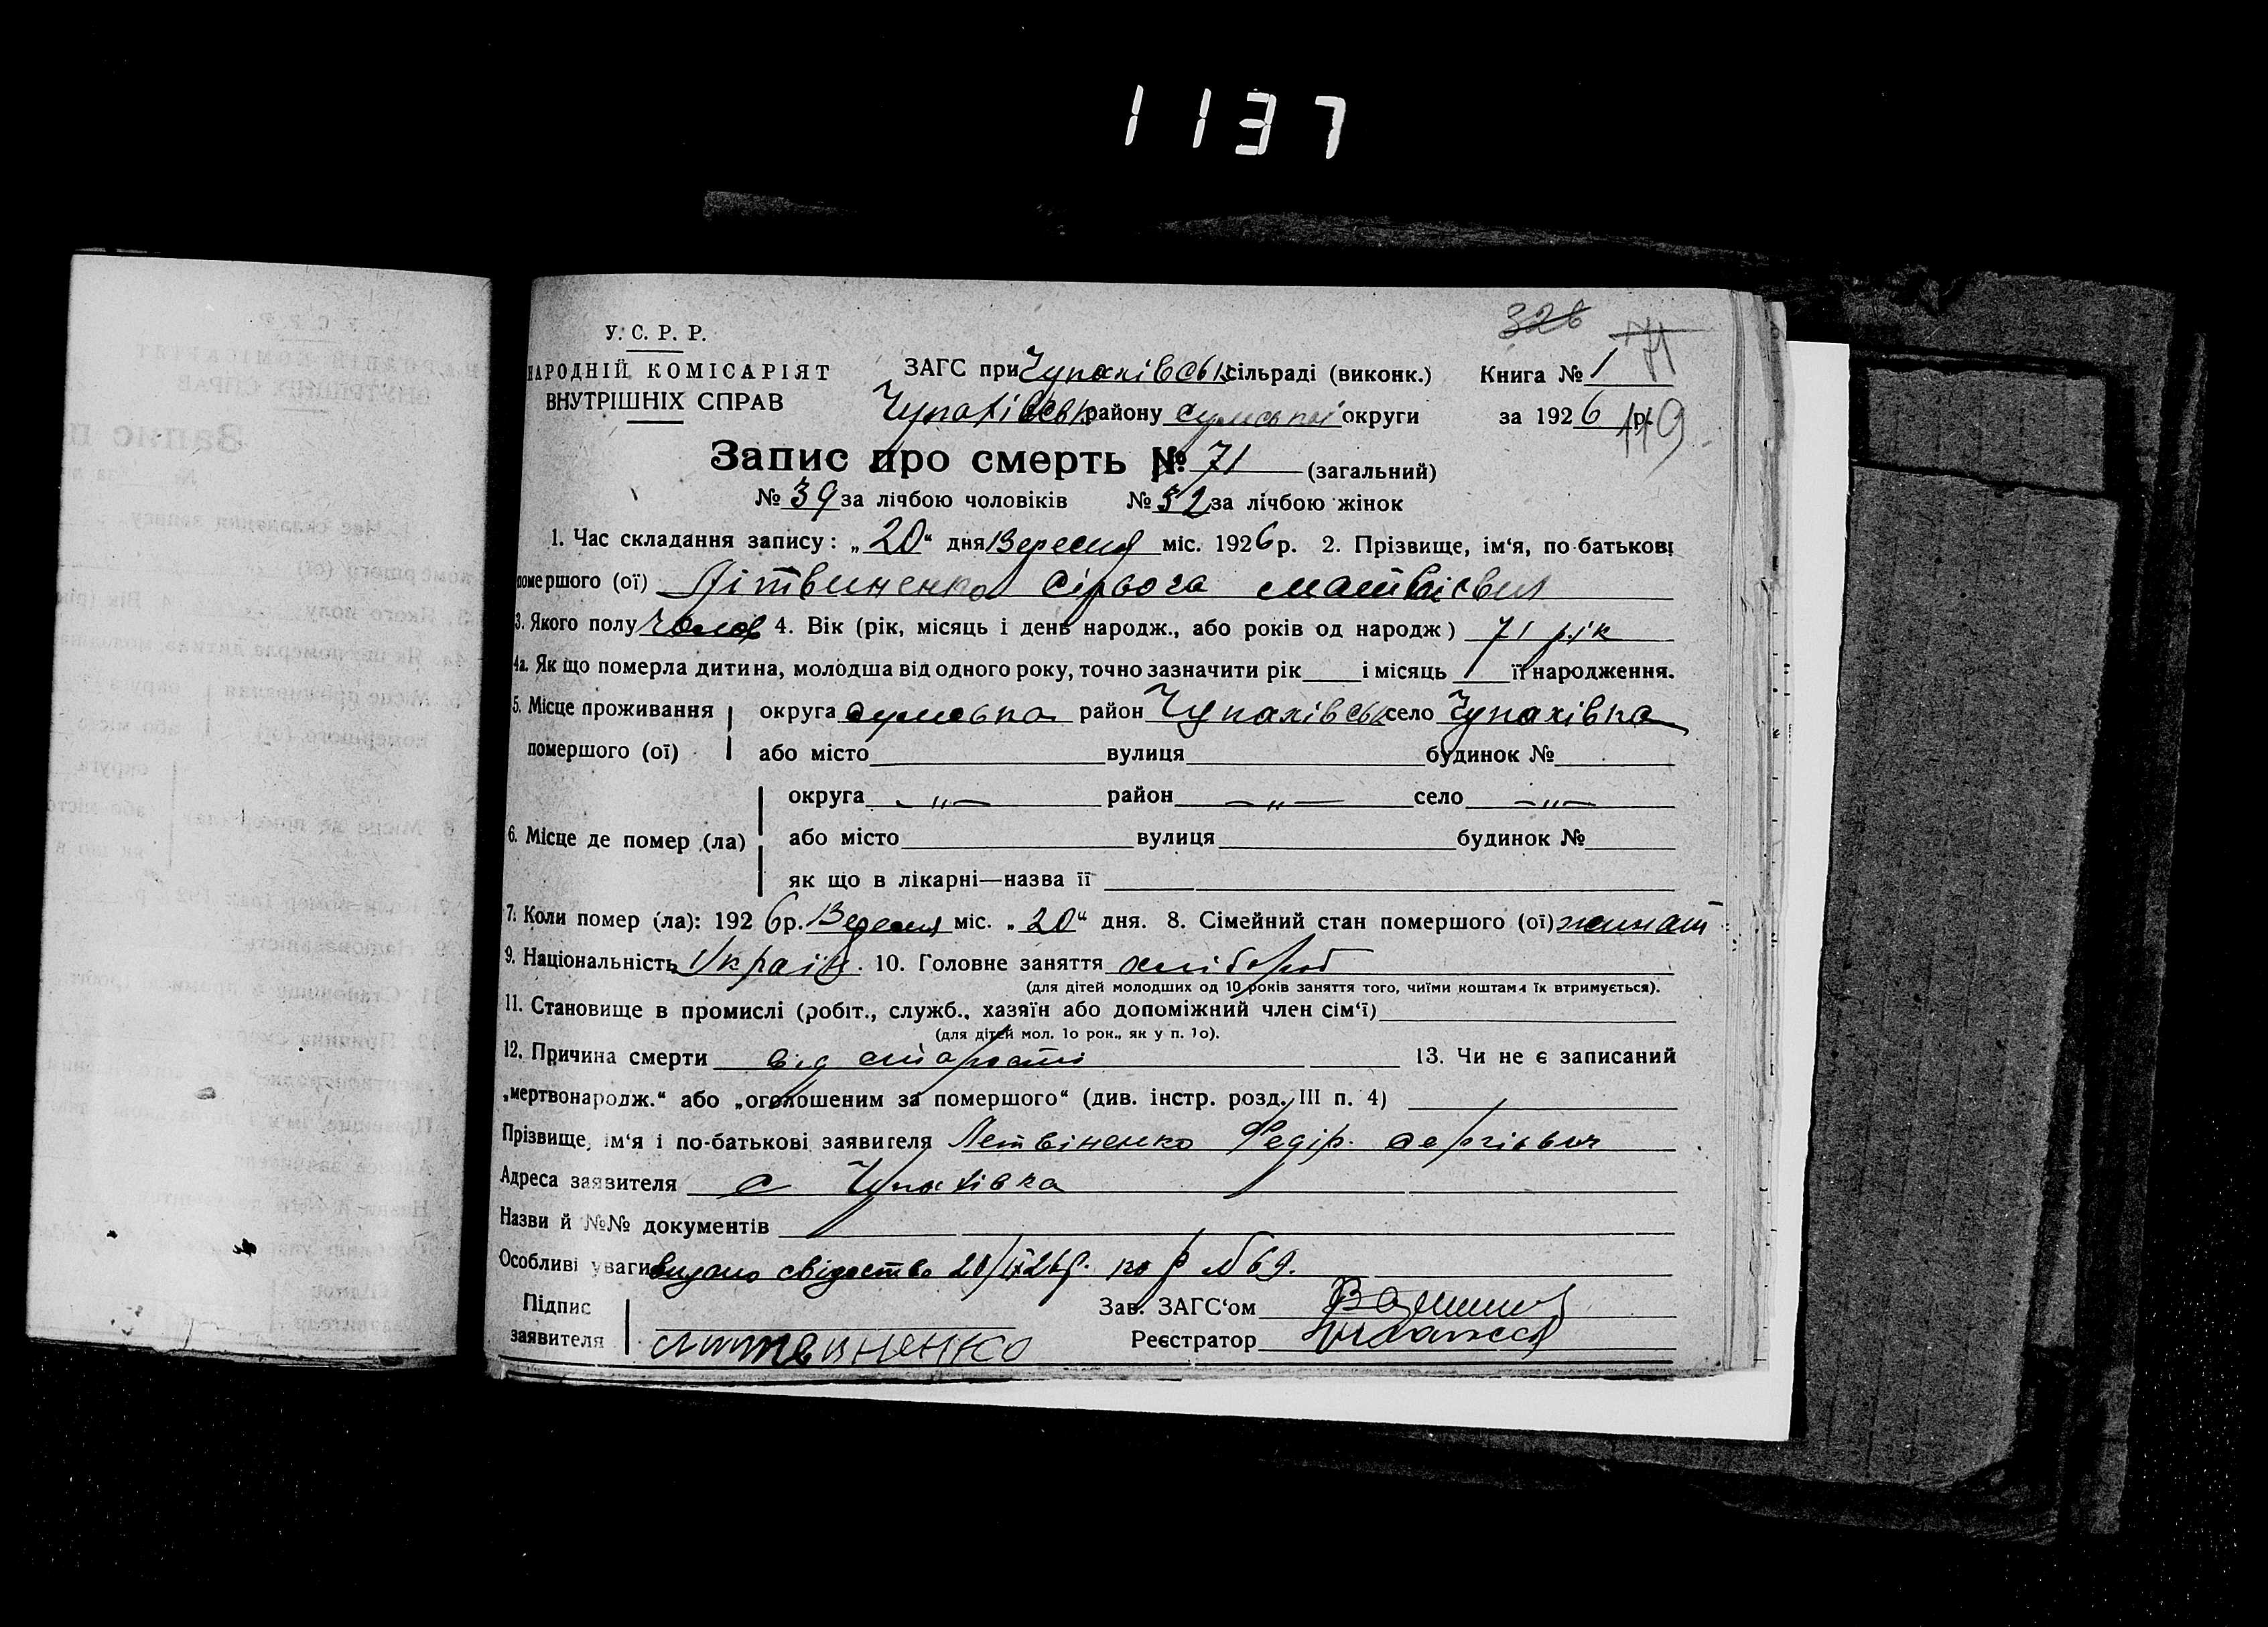 1137
328 71
У. С. Р. Р.
НАРОДНІЙ КОМІСАРІЯТ
ВНУТРІШНІХ СПРАВ
ЗАГС при Чупахівськ сільраді (виконк.) Книга № 1
Чупахівськ району Сумської округи за 1926 р. 119
Запис про смерть № 71 (загальний)
№ 39 за лічбою чоловіків № 32 за лічбою жінок
1. Час складання запису: „20“ дня Вересня міс. 1926 р. 2. Прізвище, ім‘я, по-батькові
помершого (ої) Літвиненко Сірьога Матвієвич
3. Якого полу Чолов 4. Вік (рік, місяць і день народж., або років од народж) 71 рік
4а. Як що померла дитина, молодша від одного року, точно зазначити рік і місяць її народження.
5. Місце проживання округа Сумська район Чупахівськ село Чупахівка
помершого (ої) або місто вулиця будинок №
округа —„— район —„— село —„—
6. Місце де помер (ла) або місто вулиця будинок №
як що в лікарні—назва її
7. Коли помер (ла): 1926 р. Вересня міс. „20“ дня. 8. Сімейний стан помершого (ої) жинат
9. Національність Україн. 10. Головне заняття хлібороб
(для дітей молодших од 10 років заняття того, чиїми коштами їх втримується).
11. Становище в промислі (робіт., служб., хазяїн або допоміжний член сім‘ї)
(для дітей мол. 1о рок., як у п. 1о).
12. Причина смерти від старости 13. Чи не є записаний
„мертвонародж.“ або „оголошеним за помершого“ (див. інстр. розд. III п. 4)
Прізвище, ім‘я і по-батькові заявителя Летвіненко Федір. Сергієвич
Адреса заявителя С Чупахівка
Назви й №№ документів
Особливі уваги видано свідоцтво по р №69.
Підпис Зав. ЗАГС‘ом
заявителя Литвиненко Реєстратор